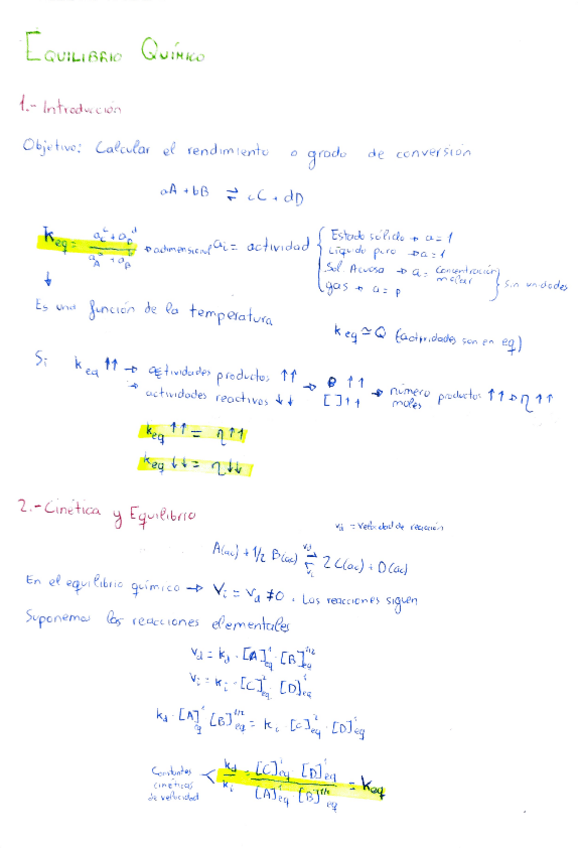 EQUILIBRIO QUÍMICO
1.- Introducción
Objetivo: Calcular el rendimiento o grado de conversión
aA + bB ⇌ cC + dD
Keq = (a_C^c + a_D^d) / (a_A^a + a_B^b) → adimensional ai = actividad { Estado sólido → a = 1
Líquido puro → a = 1
Sol Acuosa → a = concentración molar
gas → a = P } sin unidades
↓
Es una función de la temperatura
Keq ≃ Q (actividades son en eq)
Si Keq ↑↑ → actividades productos ↑↑ → P ↑↑ → número productos ↑↑ → η ↑↑
→ actividades reactivos ↓↓ [ ] ↑↑ moles
Keq ↑↑ = η ↑↑
Keq ↓↓ = η ↓↓
2.- Cinética y Equilibrio
vd = velocidad de reacción
A(ac) + 1/2 B(ac) ⇌ 2 C(ac) + D(ac)
vd
vi
En el equilibrio químico → Vi = Vd ≠ 0. Las reacciones siguen
Suponemos las reacciones elementales
vd = kd · [A]^1eq · [B]^1/2eq
vi = ki · [C]^2eq · [D]^1eq
kd · [A]^1eq [B]^1/2eq = ki [C]^2eq · [D]^1eq
Constantes cinéticas de velocidad < kd/ki = [C]eq [D]^1eq / [A]^1eq [B]^1/2eq = Keq